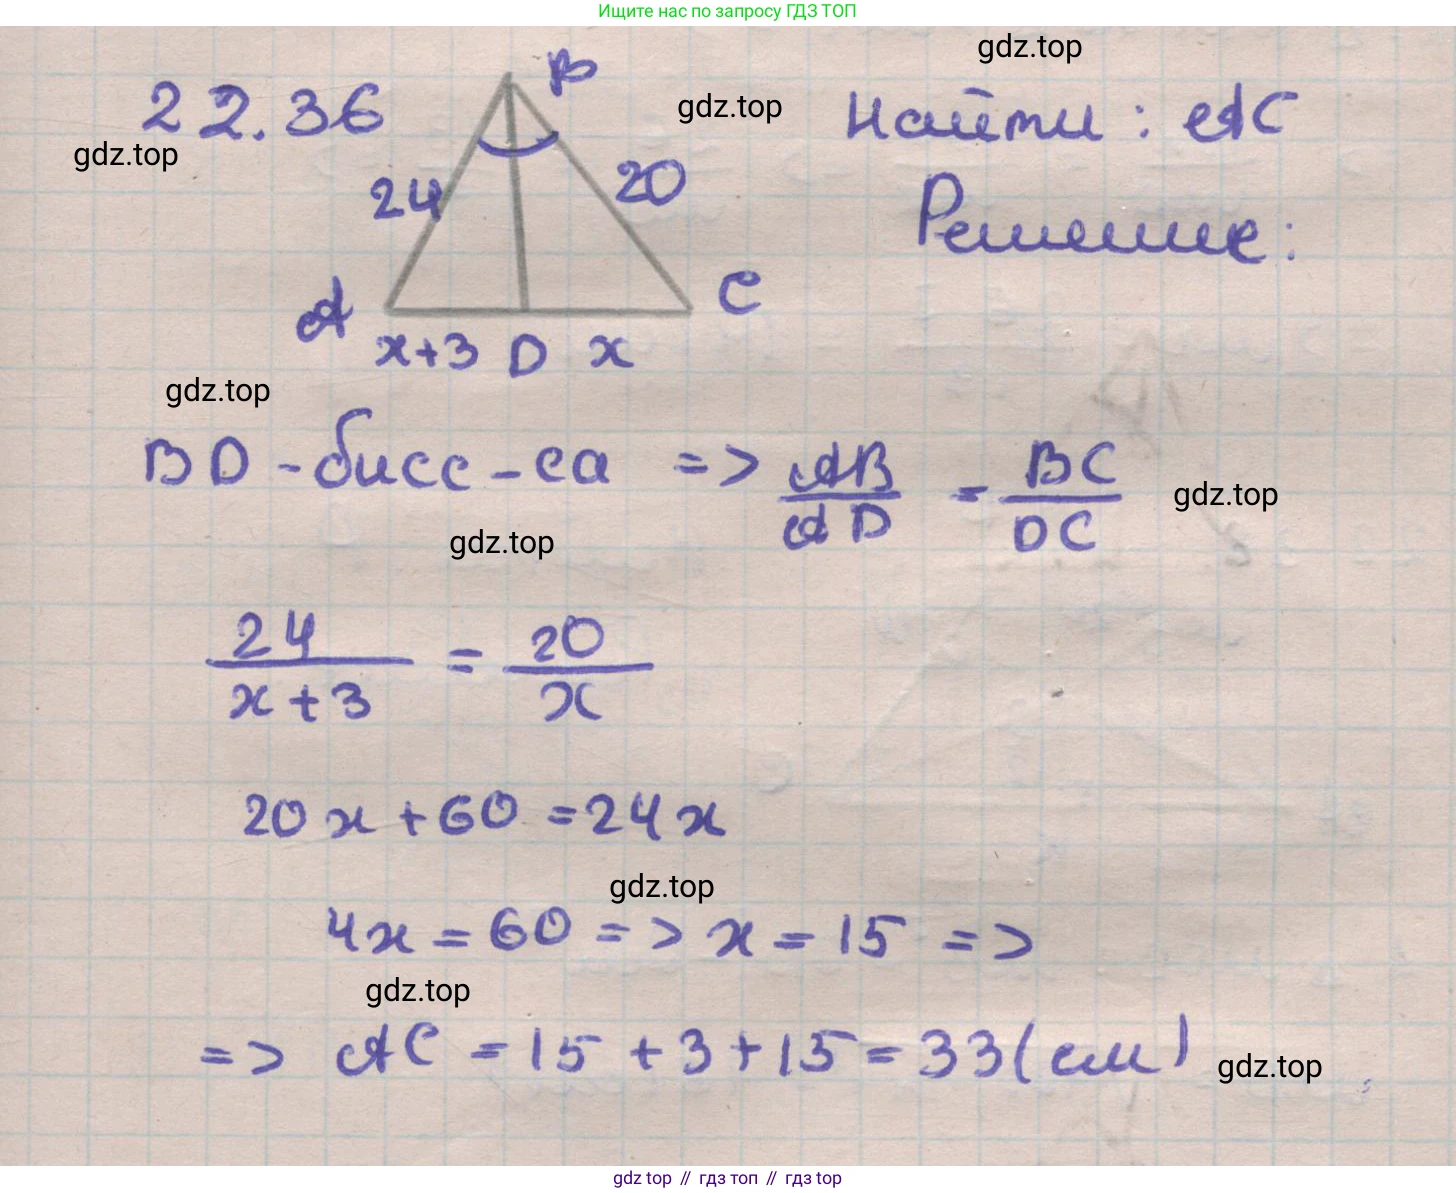 Ищите нас по запросу ГДЗ ТОП
gdz.top
22.36
B
gdz.top
Найти: AC
gdz.top
24
20
Решение:
A
C
x+3 D x
gdz.top
BD - бисс-са => AB/AD = BC/DC
gdz.top
gdz.top
24/x+3 = 20/x
20x+60=24x
gdz.top
4x=60=>x=15 =>
gdz.top
=> AC = 15+3+15=33(см)
gdz.top
gdz top // гдз топ // гдз.top